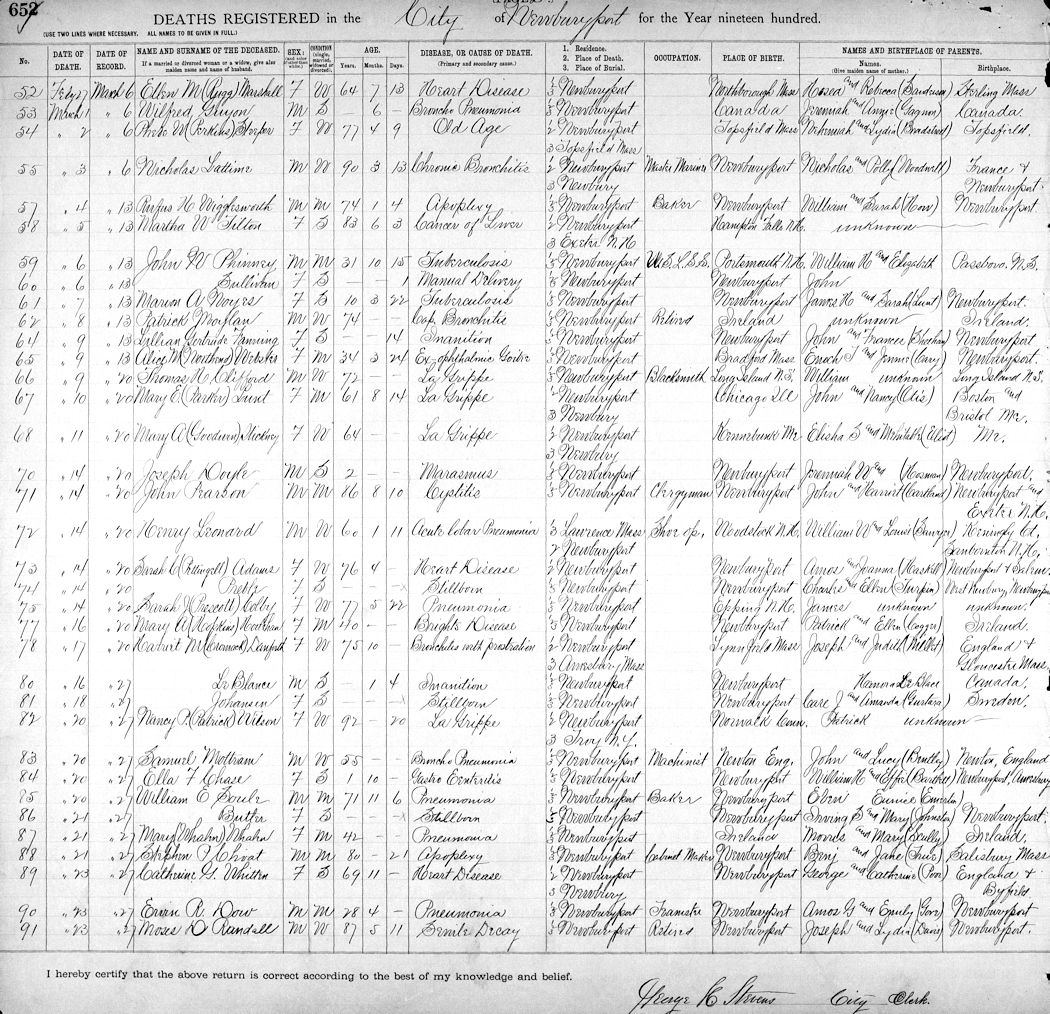 652
DEATHS REGISTERED in the City of Newburyport for the Year nineteen hundred.
(USE TWO LINES WHERE NECESSARY. ALL NAMES TO BE GIVEN IN FULL.)
No. DATE OF DEATH. DATE OF RECORD. NAME AND SURNAME OF THE DECEASED. If a married or divorced woman or a widow, give also maiden name and name of husband. SEX: CONDITION (single, married, widowed or divorced). AGE. Years. Months. Days. DISEASE, OR CAUSE OF DEATH. (Primary and secondary cause.) 1. Residence. 2. Place of Death. 3. Place of Burial. OCCUPATION. PLACE OF BIRTH. NAMES AND BIRTHPLACE OF PARENTS. Names. (Give maiden name of mother.) Birthplace.
52 Feby 27 March 6 Ellen M (Rigg) Marshall F W 64 7 13 Heart Disease Newburyport Northborough Mass Hosea and Rebecca Sterling Mass
53 March 1 " 6 Wilfred Guyon M S - 6 - Broncho Pneumonia Newburyport Canada Jeremiah and (Gagnon) Canada.
54 " 2 " 6 (Perkins) F W 77 4 9 Old Age Newburyport Topsfield Mass Nehemiah and Lydia (Bradstreet) Topsfield.
3 Topsfield Mass
55 " 3 " 6 Nicholas Lattime M W 90 3 13 Chronic Bronchitis Newburyport Master Mariner Newburyport Nicholas and Polly (Woodwell) France &
3 Newbury Newburyport.
57 " 4 " 13 Rufus H Wigglesworth M M 74 1 4 Apoplexy Newburyport Baker Newburyport William and Sarah (How) Newburyport.
58 " 5 " 13 Martha W Tilton F S 83 6 3 Cancer of Liver Newburyport Hampton Falls N.H. unknown
3 Exeter N.H
59 " 6 " 13 John W Phinney M M 31 10 15 Tuberculosis Newburyport U.S.L.S.S. Portsmouth N.H. William H and Elizabeth
60 " 6 " 13 Sullivan F S - - 1 Manual Delivery Newburyport Newburyport John
61 " 7 " 13 Marion A Noyes F S 10 3 22 Tuberculosis Newburyport Newburyport James H and Sarah (Lunt) Newburyport.
62 " 8 " 13 Patrick Moylan M W 74 - - Cap. Bronchitis Newburyport Retired Ireland unknown Ireland.
64 " 9 " 13 Lillian Gertrude Fanning F S - - 14 Inanition Newburyport Newburyport John and Frances Newburyport.
65 " 9 " 13 Alice M (Northend) Webster F M 34 3 24 Ex-ophthalmic Goitre Newburyport Bradford Mass Enoch J and (Cary) Newburyport.
66 " 9 " 20 Thomas H Clifford M W 72 - - La Grippe Newburyport Blacksmith Long Island N.S. William unknown Long Island N.S.
67 " 10 " 20 Mary E (Parker) Lunt F M 61 8 14 La Grippe Newburyport Chicago Ill John and Nancy Boston and
3 Newbury Bristol Me.
68 " 11 " 20 Mary A (Goodwin) Stickney F W 64 - La Grippe Newburyport Kennebunk Me Elisha S and Mehitable Me.
3 Newbury
70 " 14 " 20 Joseph Doyle M S 2 - - Marasmus Newburyport Newburyport Jeremiah W and (Hosman) Newburyport.
71 " 14 " 20 John Pearson M M 86 8 10 Cystitis Newburyport Clergyman Newburyport John and Harriet Newburyport and
Exeter N.H.
72 " 14 " 20 Henry Leonard M W 60 1 11 Acute lobar Pneumonia Lawrence Mass Shoe op. Woodstock N.H. William W and Ct.
2 Newburyport Sanbornton N.H.
73 " 14 " 20 Sarah C (Pettingell) Adams F W 76 4 - Heart Disease Newburyport Newburyport Amos and Joanna (Haskell) Newburyport &
74 " 14 " 20 F S - Stillborn Newburyport Newburyport Charles and Ellen (Turpin) West Newbury, Newburyport
75 " 14 " 20 Sarah J (Prescott) Colby F W 77 5 22 Pneumonia Newburyport Epping N.H. James unknown unknown.
77 " 16 " 20 Mary A (Hopkins) F M 40 - - Brights Disease Newburyport Newburyport Patrick and Ellen Ireland.
78 " 17 " 20 M (Cromwell) Danforth F W 75 10 - Bronchitis with prostration Newburyport Lynnfield Mass Joseph and Judith England &
3 Amesbury Mass Gloucester Mass
80 " 16 " 27 Le Blance M S - 1 4 Inanition Newburyport Newburyport Canada.
81 " 18 " 27 Johansen F S Stillborn Newburyport Newburyport Carl J and Amanda Sweden.
82 " 20 " 27 Nancy P (Patrick) Wilson F W 92 - 20 La Grippe Newburyport Norwalk Conn. Patrick unknown
3 Troy N.Y.
83 " 20 " 27 Samuel Mottram M W 55 - - Broncho Pneumonia Newburyport Machinist Newton Eng. John and Lucy (Bentley) Newton, England
84 " 20 " 27 Ella F Chase F S 1 10 - Gastro Enteritis Newburyport Newburyport William H and Effie (Bartlett) Newburyport, Amesbury
85 " 20 " 27 William E Soule M M 71 11 6 Pneumonia Newburyport Baker Newburyport Eben Eunice
86 " 21 " 27 Butler F S - Stillborn Newburyport Newburyport Irving S and Mary Newburyport.
87 " 21 " 27 Mary (Whalen) Whalen F M 42 - - Pneumonia Newburyport Ireland Morris and Mary (Scully) Ireland.
88 " 21 " 27 Stephen P Choat M M 80 - 21 Apoplexy Newburyport Cabinet Maker Newburyport Benj and Jane Salisbury Mass
89 " 23 " 27 Catherine G. Whitten F S 69 11 - Heart Disease Newburyport Newburyport George and Catherine (Poor) England &
3 Newbury Byfield
90 " 23 " 27 Ervin R. Dow M M 28 4 - Pneumonia Newburyport Teamster Newburyport Amos G and Emily Newburyport
91 " 23 " 27 Moses D Randall M W 87 5 11 Senile Decay Newburyport Retired Newburyport Joseph and Lydia (Davis) Newburyport.
I hereby certify that the above return is correct according to the best of my knowledge and belief.
George H Stevens City Clerk.